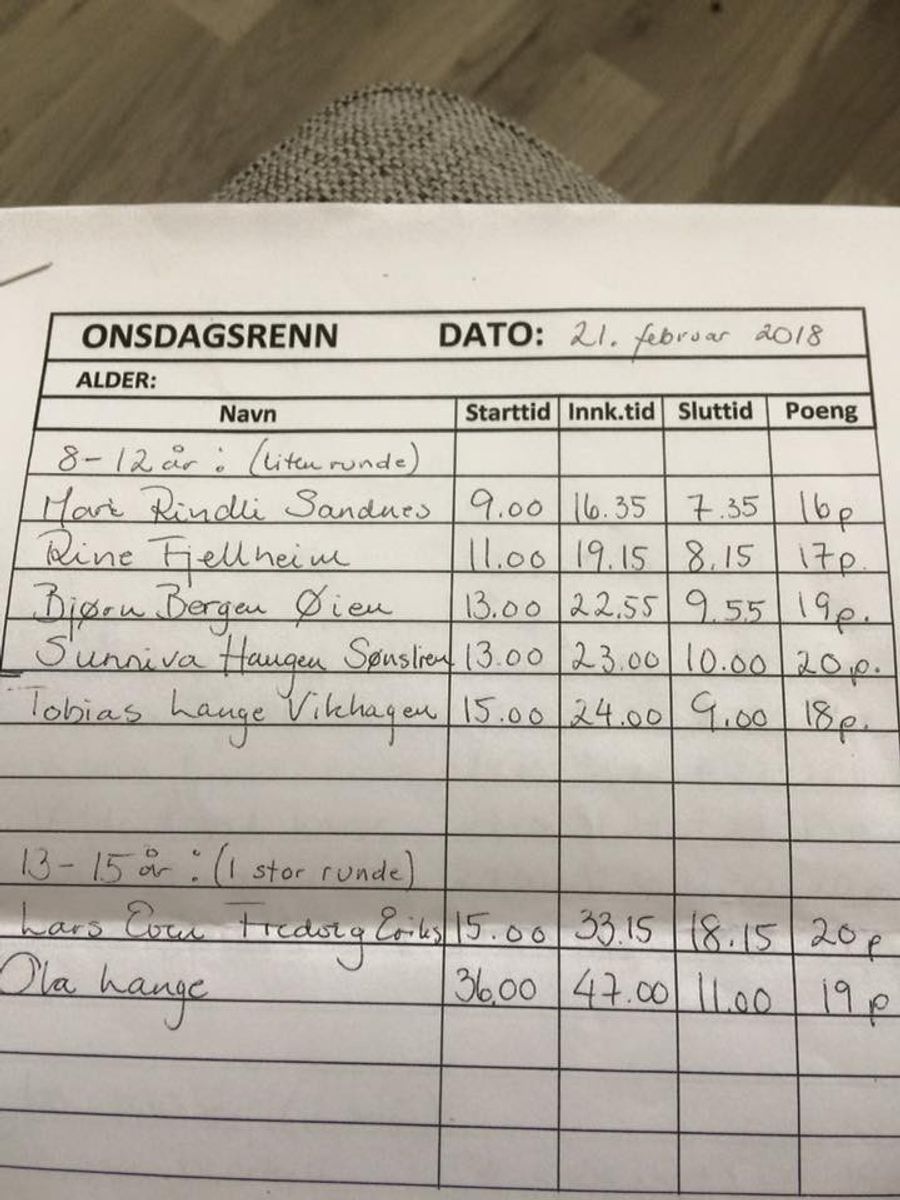 ONSDAGSRENN DATO: 21. februar 2018
ALDER:
Navn Starttid Innk.tid Sluttid Poeng
8-12 år : (liten runde)
Rindli Sandnes 9.00 16.35 7.35 16p
Rine Fjellheim 11.00 19.15 8.15 17p.
Bjørn Bergen Øien 13.00 22.55 9.55 19p.
Sunniva Haugen Sønslien 13.00 23.00 10.00 20.p.
Tobias Lange Vikhagen 15.00 24.00 9.00 18p.
13-15 år : (1 stor runde)
Lars Even 15.00 33.15 18.15 20p
Ola Lange 36.00 47.00 11.00 19p